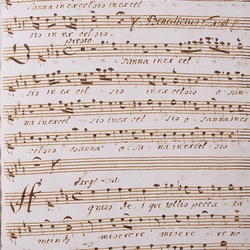 sanna in excelsis in excel
sis in excelsis Benedictus
Presto
sanna in excel
sis in excelsis in excel
na in excelsis in excelsis osanna in
excelsis osanna in excelsis
Agnus De i qui tollis pecca ta
mundi miserere miserere no